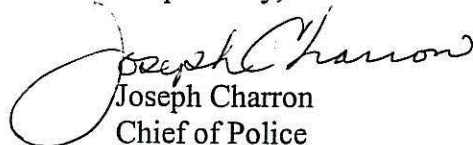 Joseph Charron
Joseph Charron
Chief of Police